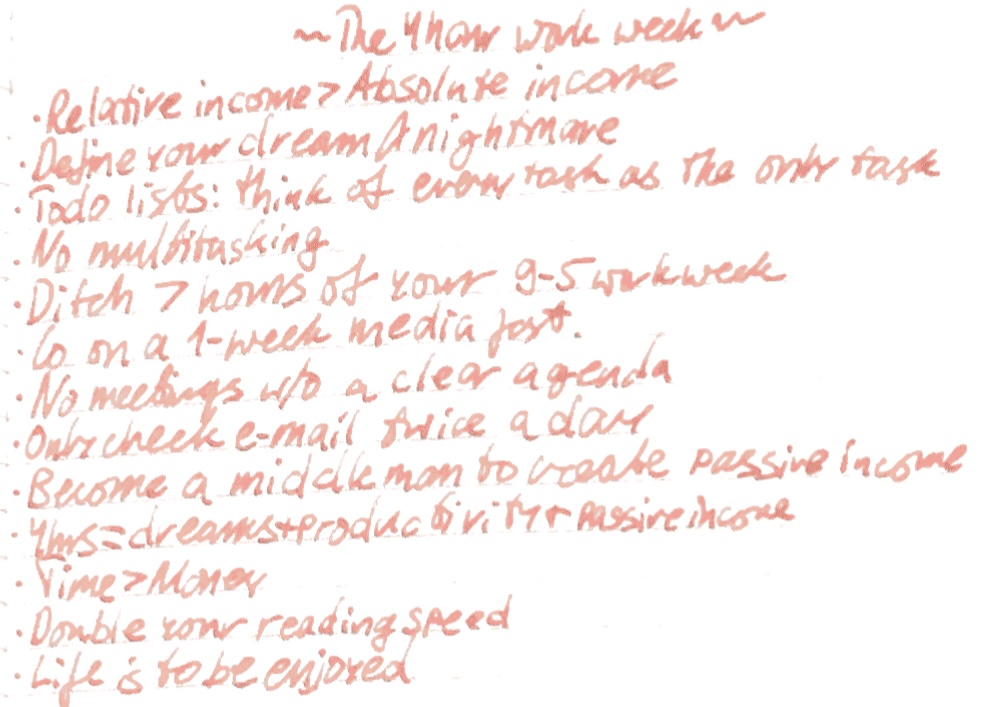 ~The 4 hour work week~
·Relative income>Absolute income
·Define your dream & nightmare
·Todo lists: think of every task as the only task
·No multitasking
·Ditch 7 hours of your 9-5 workweek
·Go on a 1-week media fast.
·No meetings w/o a clear agenda
·Only check e-mail twice a day
·Become a middleman to create passive income
·4hrs=dreams+productivity+passive income
·Time>Money
·Double your reading speed
·Life is to be enjoyed